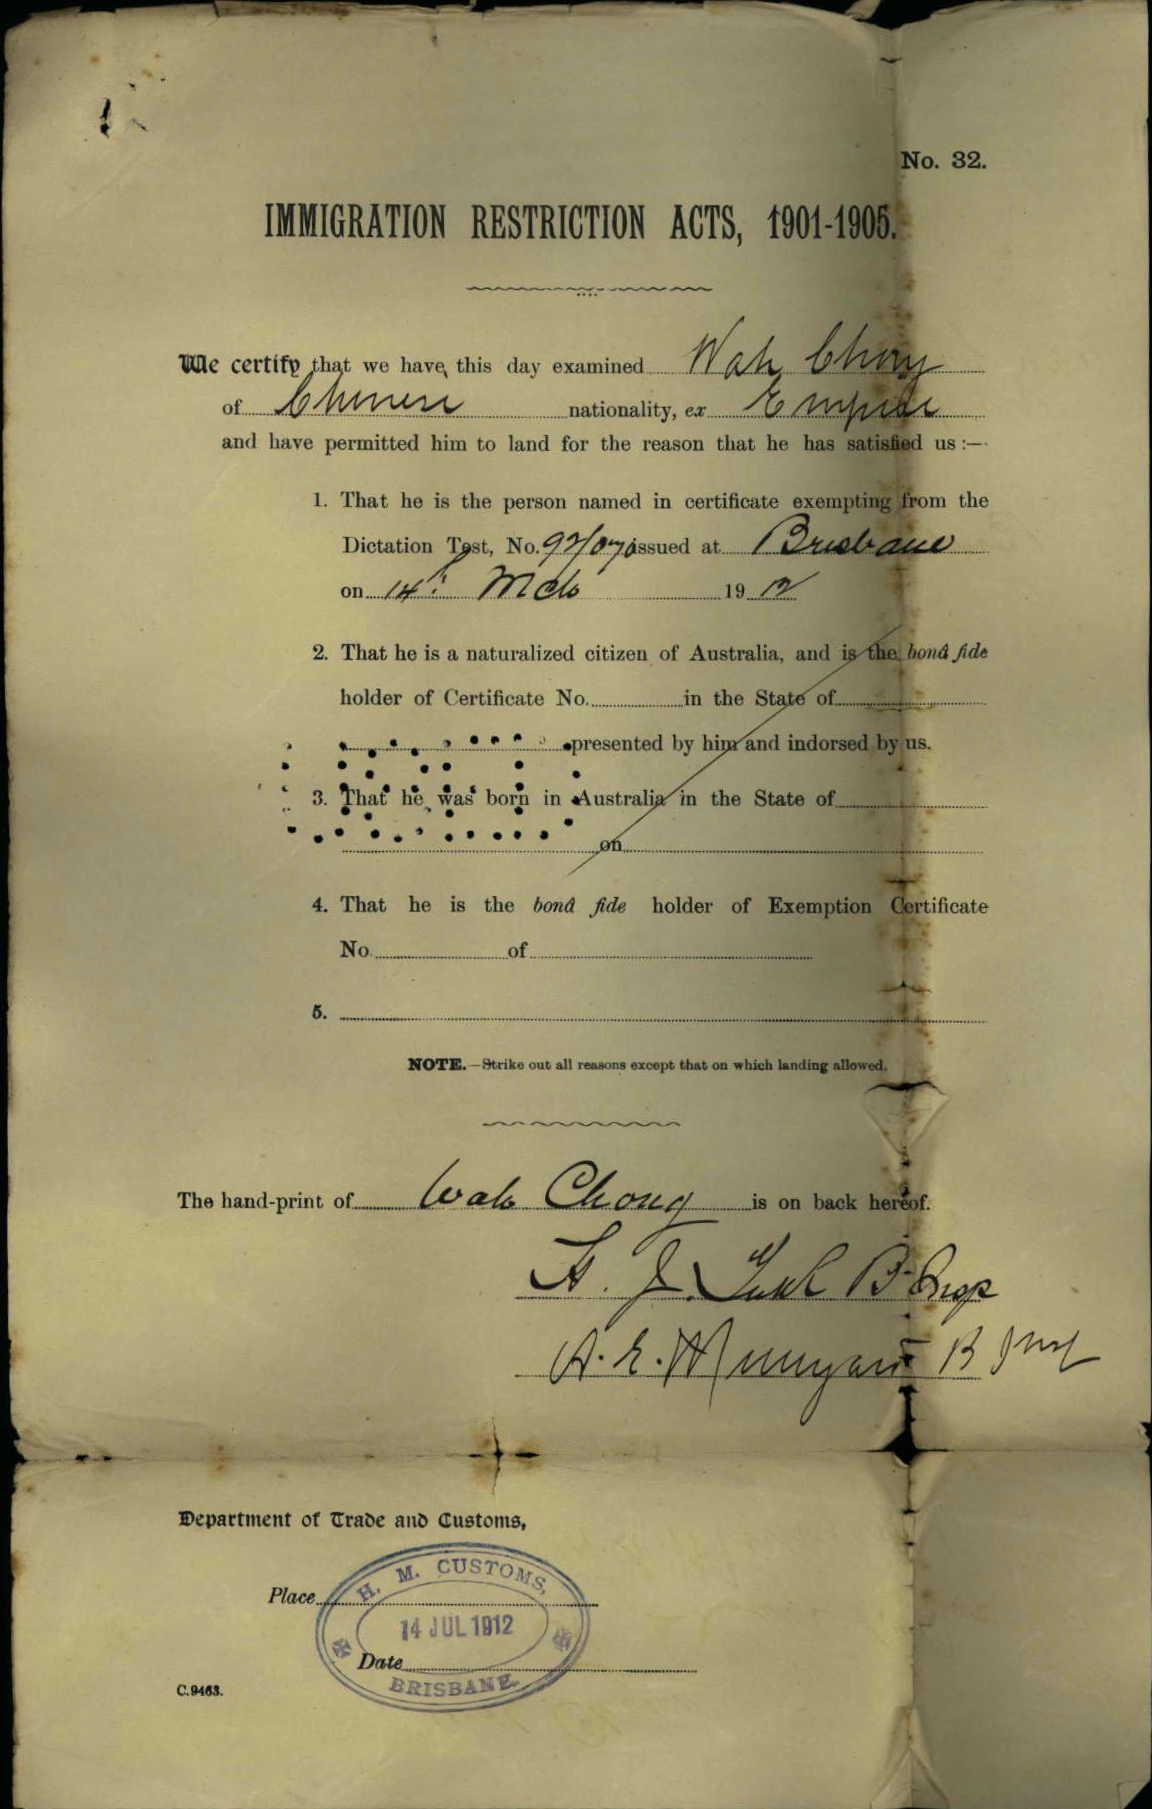 No. 32.
IMMIGRATION RESTRICTION ACTS, 1901-1905.
We certify that we have this day examined Wah Chong
of Chinese nationality, ex Empire
and have permitted him to land for the reason that he has satisfied us :—
1. That he is the person named in certificate exempting from the
Dictation Test, No. issued at Brisbane
on 14th Mch 1912
2. That he is a naturalized citizen of Australia, and is the bonâ fide
holder of Certificate No. in the State of
presented by him and indorsed by us.
3. That he was born in Australia in the State of
on
4. That he is the bonâ fide holder of Exemption Certificate
No. of
5.
NOTE.—Strike out all reasons except that on which landing allowed.
The hand-print of Wah Chong is on back hereof.
Department of Trade and Customs,
H. M. CUSTOMS,
Place
14 JUL 1912
Date
BRISBANE
C.9463.